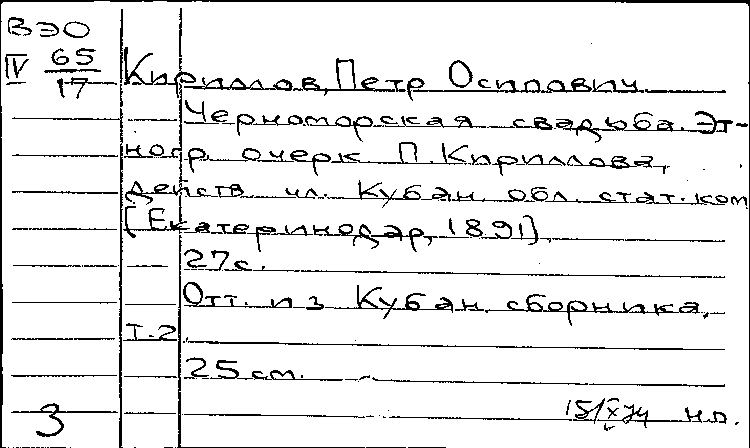 ВЭО
IV 65/17
Кириллов, Петр Осипович
Черноморская свадьба. Эт-
ногр. очерк П. Кириллова,
действ. чл. Кубан. обл. стат. ком
[Екатеринодар, 1891].
27с.
Отт. из Кубан. сборника,
т. 2.
25 см.
3 15/X 74 н.п.